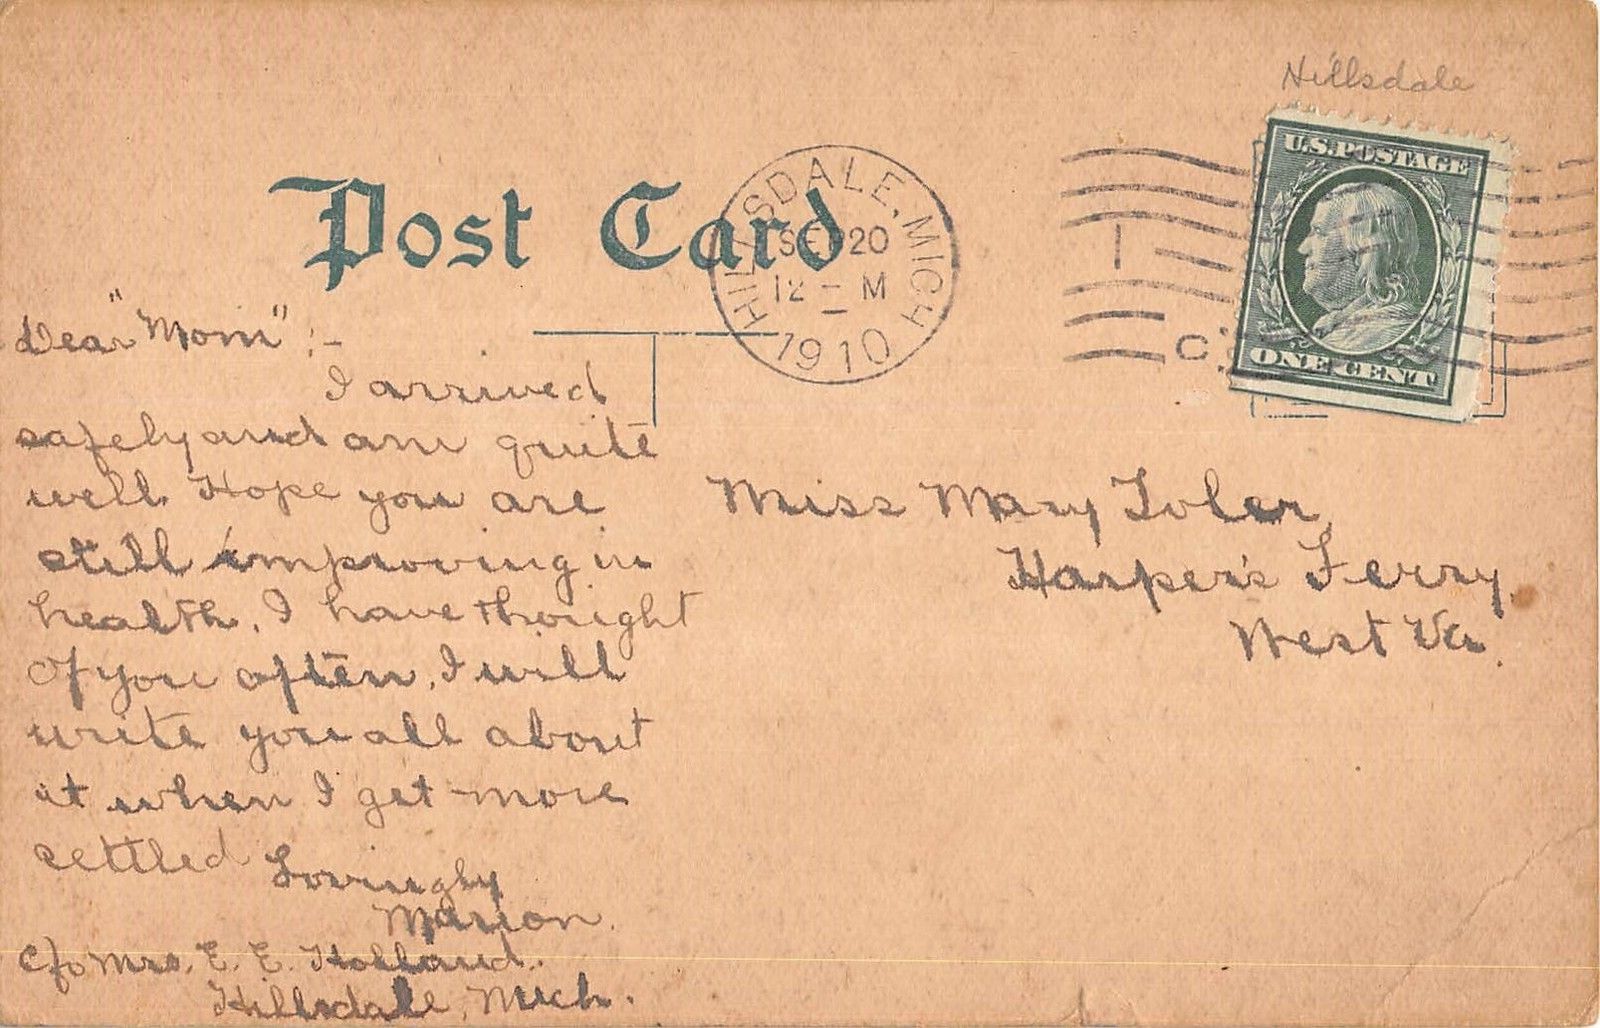 Hillsdale
U.S. POSTAGE
ONE CENT
Post Card
HILLSDALE, MICH
SEP 20
12 - M
1910
Dear "Mom" :-
I arrived
safely and am quite
well. Hope you are
still improving in
health. I have thought
of you often. I will
write you all about
it when I get more
settled
Lovingly
Marion.
c/o Mrs. E. E. Holland.
Hillsdale, Mich.
Miss Mary Toler,
Harper's Ferry,
West Va.